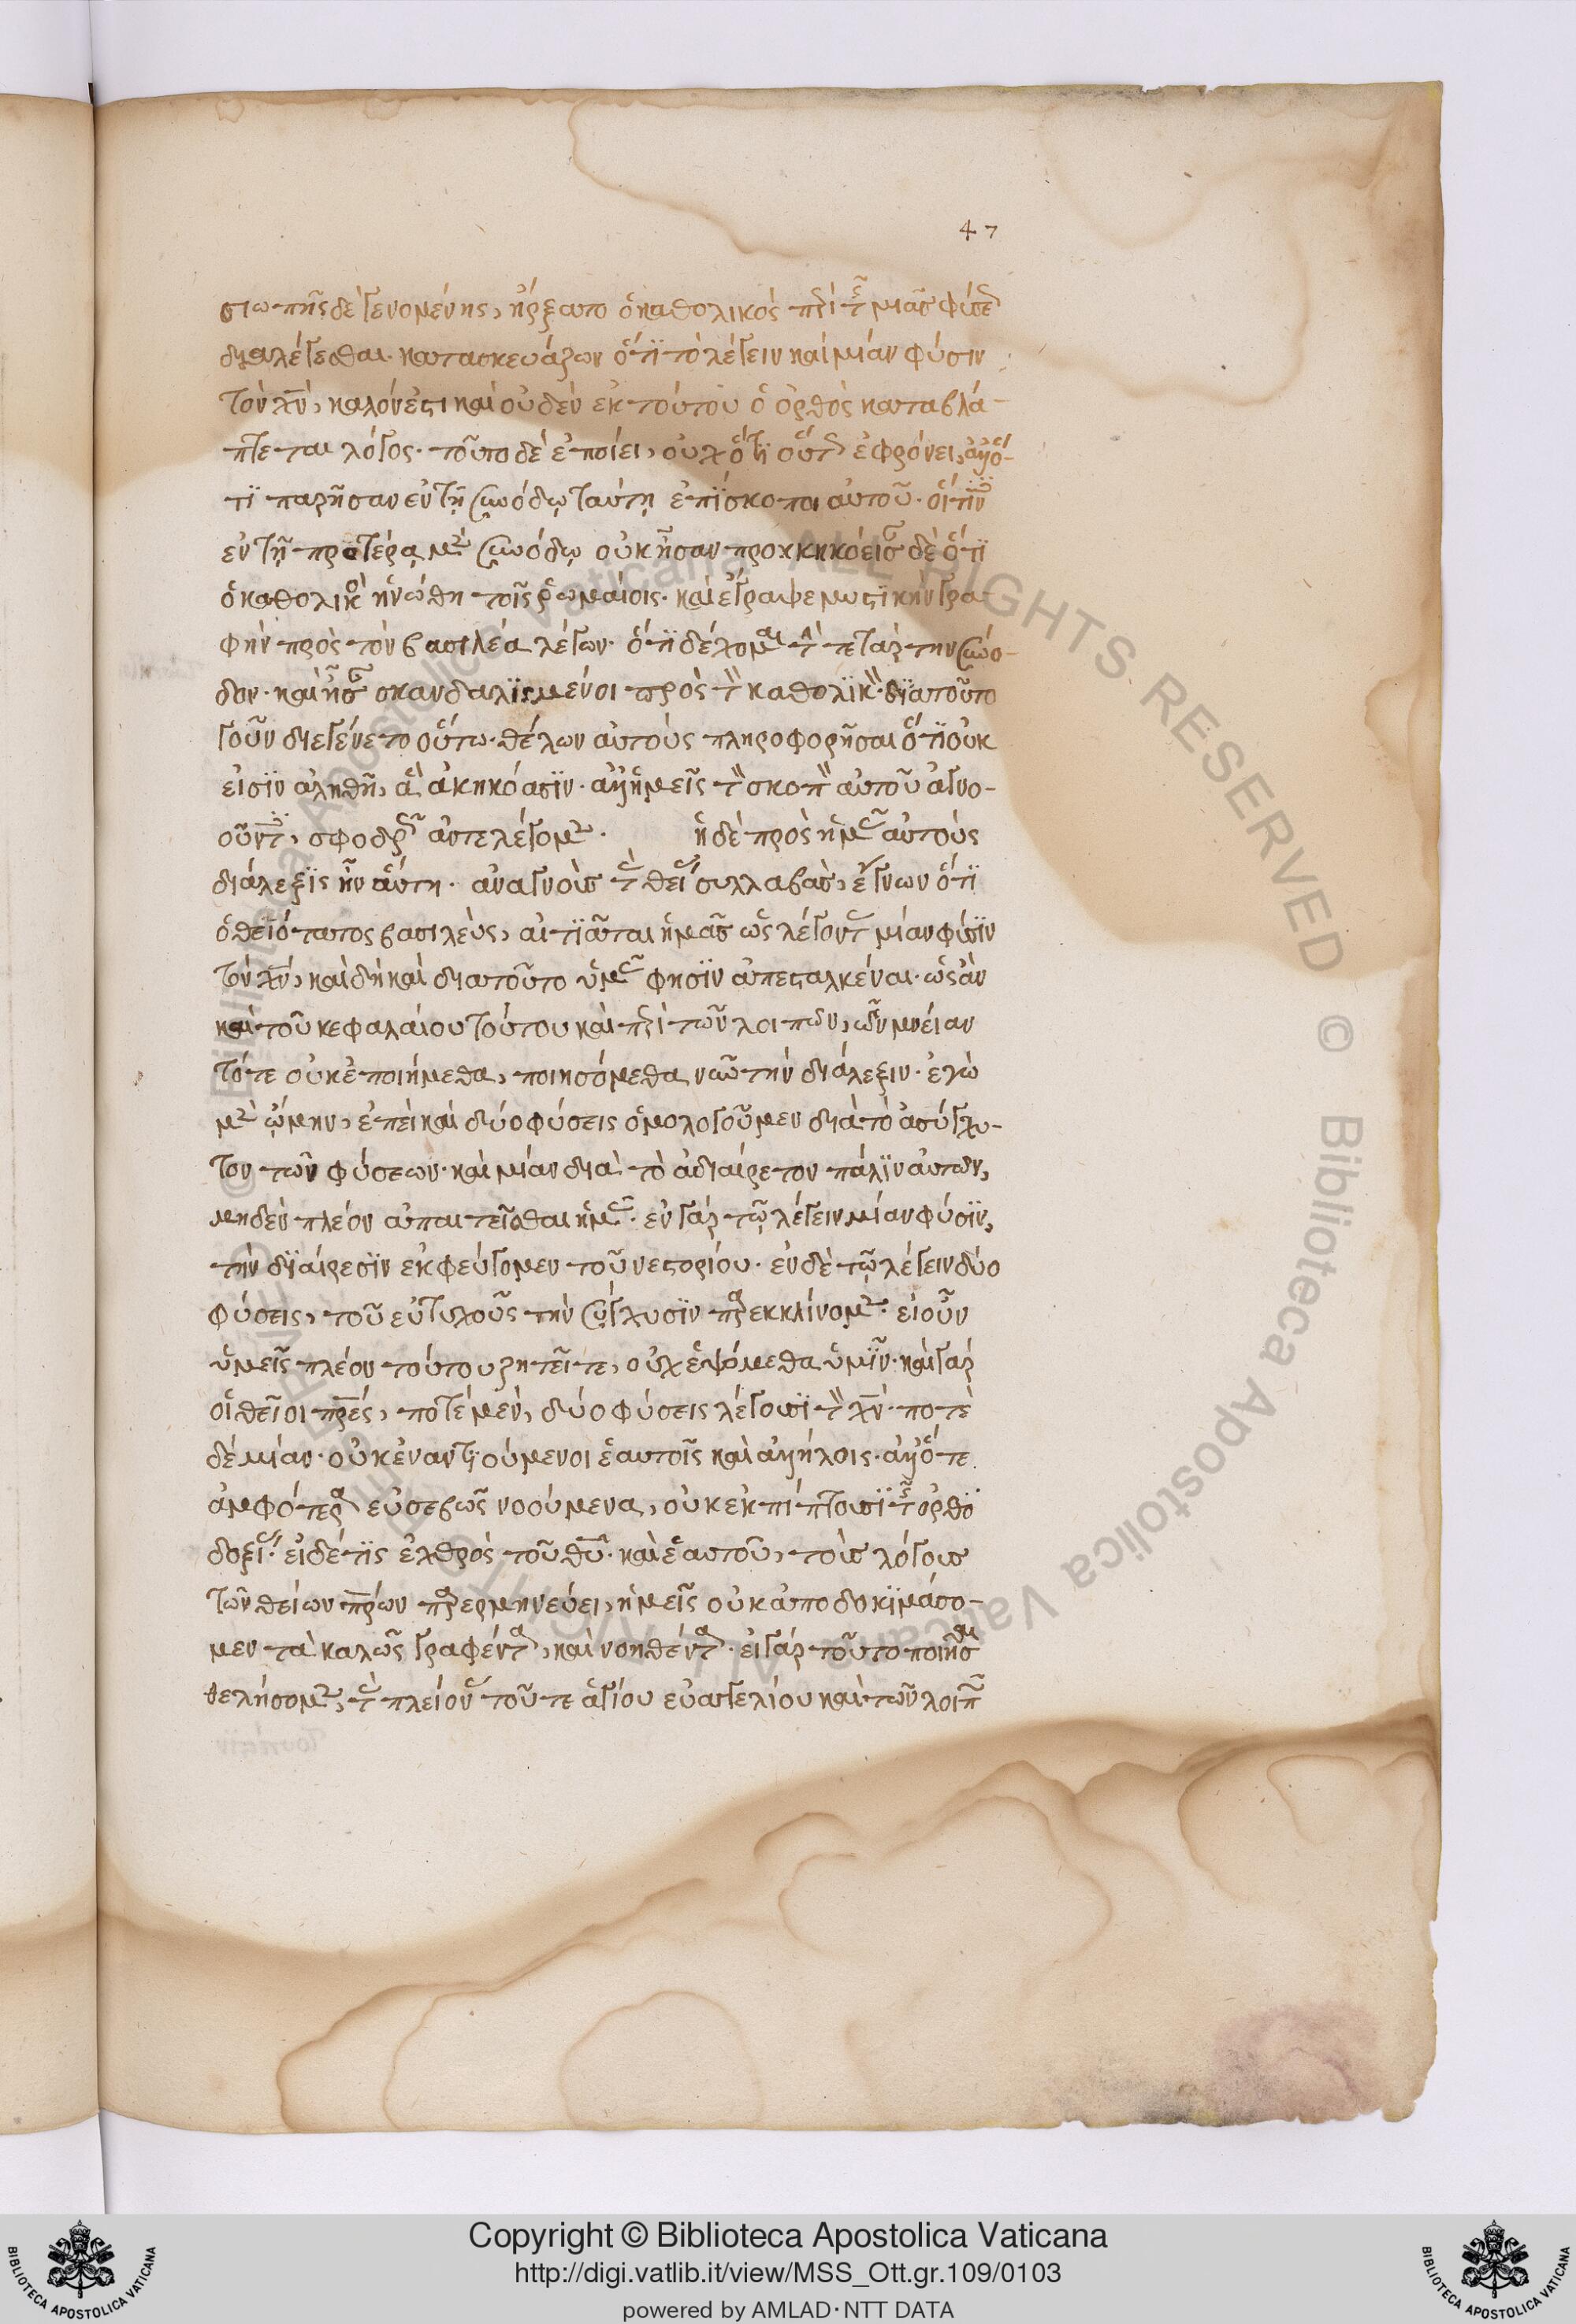 47
σιωπῆς δὲ γενομένης, ἤρξατο ὁ καθολικὸς περὶ τῆς μιᾶς φύσεως
διαλέγεσθαι· κατασκευάζων ὅτι τὸ λέγειν καὶ μίαν φύσιν
τὸν χν̄, καλόν ἐστι καὶ οὐδὲν ἐκ τούτου ὁ ὀρθὸς καταβλά-
πτεται λόγος· τοῦτο δὲ ἐποίει, οὐχ ὅτι οὕτως ἐφρόνει, ἀλλ' ὅ-
τι παρῆσαν ἐν τῇ συνόδῳ ταύτῃ ἐπίσκοποι αὐτοῦ· οἵτινες
ἐν τῇ προτέρᾳ μὲν συνόδῳ οὐκ ἦσαν προακηκόεισαν δὲ ὅτι
ὁ καθολικὸς ἡνώθη τοῖς ῥωμαίοις· καὶ ἔγραψε μυστικὴν γρα-
φὴν πρὸς τὸν βασιλέα λέγων· ὅτι δέχομαι τὴν τετάρτην σύνο-
δον· καὶ ἦσαν σκανδαλισμένοι πρὸς τὸν καθολικόν· διὰ τοῦτο
γοῦν διεγένετο οὕτω· θέλων αὐτοὺς πληροφορῆσαι ὅτι οὐκ
εἰσὶν ἀληθῆ, ἃ ἀκηκόασιν· ἀλλ' ἡμεῖς τὸν σκοπὸν αὐτοῦ ἀγνο-
οῦντες, σφοδρῶς ἀντελέγομεν· ἡ δὲ πρὸς ἡμᾶς αὐτοὺς
διάλεξις ἦν αὕτη· ἀναγνοὺς τὰς θείας συλλαβὰς, ἔγνων ὅτι
ὁ θειότατος βασιλεὺς, αἰτιᾶται ἡμᾶς ὡς λέγοντας μίαν φύσιν
τὸν χν̄, καὶ δὴ καὶ διὰ τοῦτο ὑμᾶς φησὶν ἀπεσταλκέναι· ὡς ἂν
καὶ τοῦ κεφαλαίου τούτου καὶ περὶ τῶν λοιπῶν, ὧν μνείαν
τότε οὐκ ἐποιήμεθα, ποιησόμεθα νῦν τὴν διάλεξιν· ἐγὼ
μὲν ᾤμην, ἐπεὶ καὶ δύο φύσεις ὁμολογοῦμεν διὰ τὸ ἀσύγχυ-
τον τῶν φύσεων· καὶ μίαν διὰ τὸ ἀδιαίρετον πάλιν αὐτῶν,
μηδὲν πλέον ἀπαιτεῖσθαι ἡμᾶς· ἐν γὰρ τῷ λέγειν μίαν φύσιν,
τὴν διαίρεσιν ἐκφεύγομεν τοῦ νεστορίου· ἐν δὲ τῷ λέγειν δύο
φύσεις, τοῦ εὐτυχοῦς τὴν σύγχυσιν παρεκκλίνομεν· εἰ οὖν
ὑμεῖς πλέον τούτου ζητεῖτε, οὐχ ἑψόμεθα ὑμῖν· καὶ γὰρ
οἱ θεῖοι πρ̄ες, ποτὲ μὲν, δύο φύσεις λέγουσι τὸν χν̄· ποτὲ
δὲ μίαν· οὐκ ἐναντιούμενοι ἑαυτοῖς καὶ ἀλλήλοις· ἀλλ' ὅτε
ἀμφότερα εὐσεβῶς νοούμενα, οὐκ ἐκπίπτουσι τῆς ὀρθο
δοξίας· εἰ δέ τις ἐχθρὸς τοῦ θῡ· καὶ ἑαυτοῦ, τοὺς λόγους
τῶν θείων πρ̄ων παρερμηνεύει, ἡμεῖς οὐκ ἀποδοκιμάσο-
μεν τὰ καλῶς γραφέντα, καὶ νοηθέντα· εἰ γὰρ τοῦτο ποιῆσαι
θελήσομεν, τὰς πλείους τοῦ τε ἁγίου εὐαγγελίου καὶ τῶν λοιπῶν
Copyright © Biblioteca Apostolica Vaticana
http://digi.vatlib.it/view/MSS_Ott.gr.109/0103
powered by AMLAD·NTT DATA